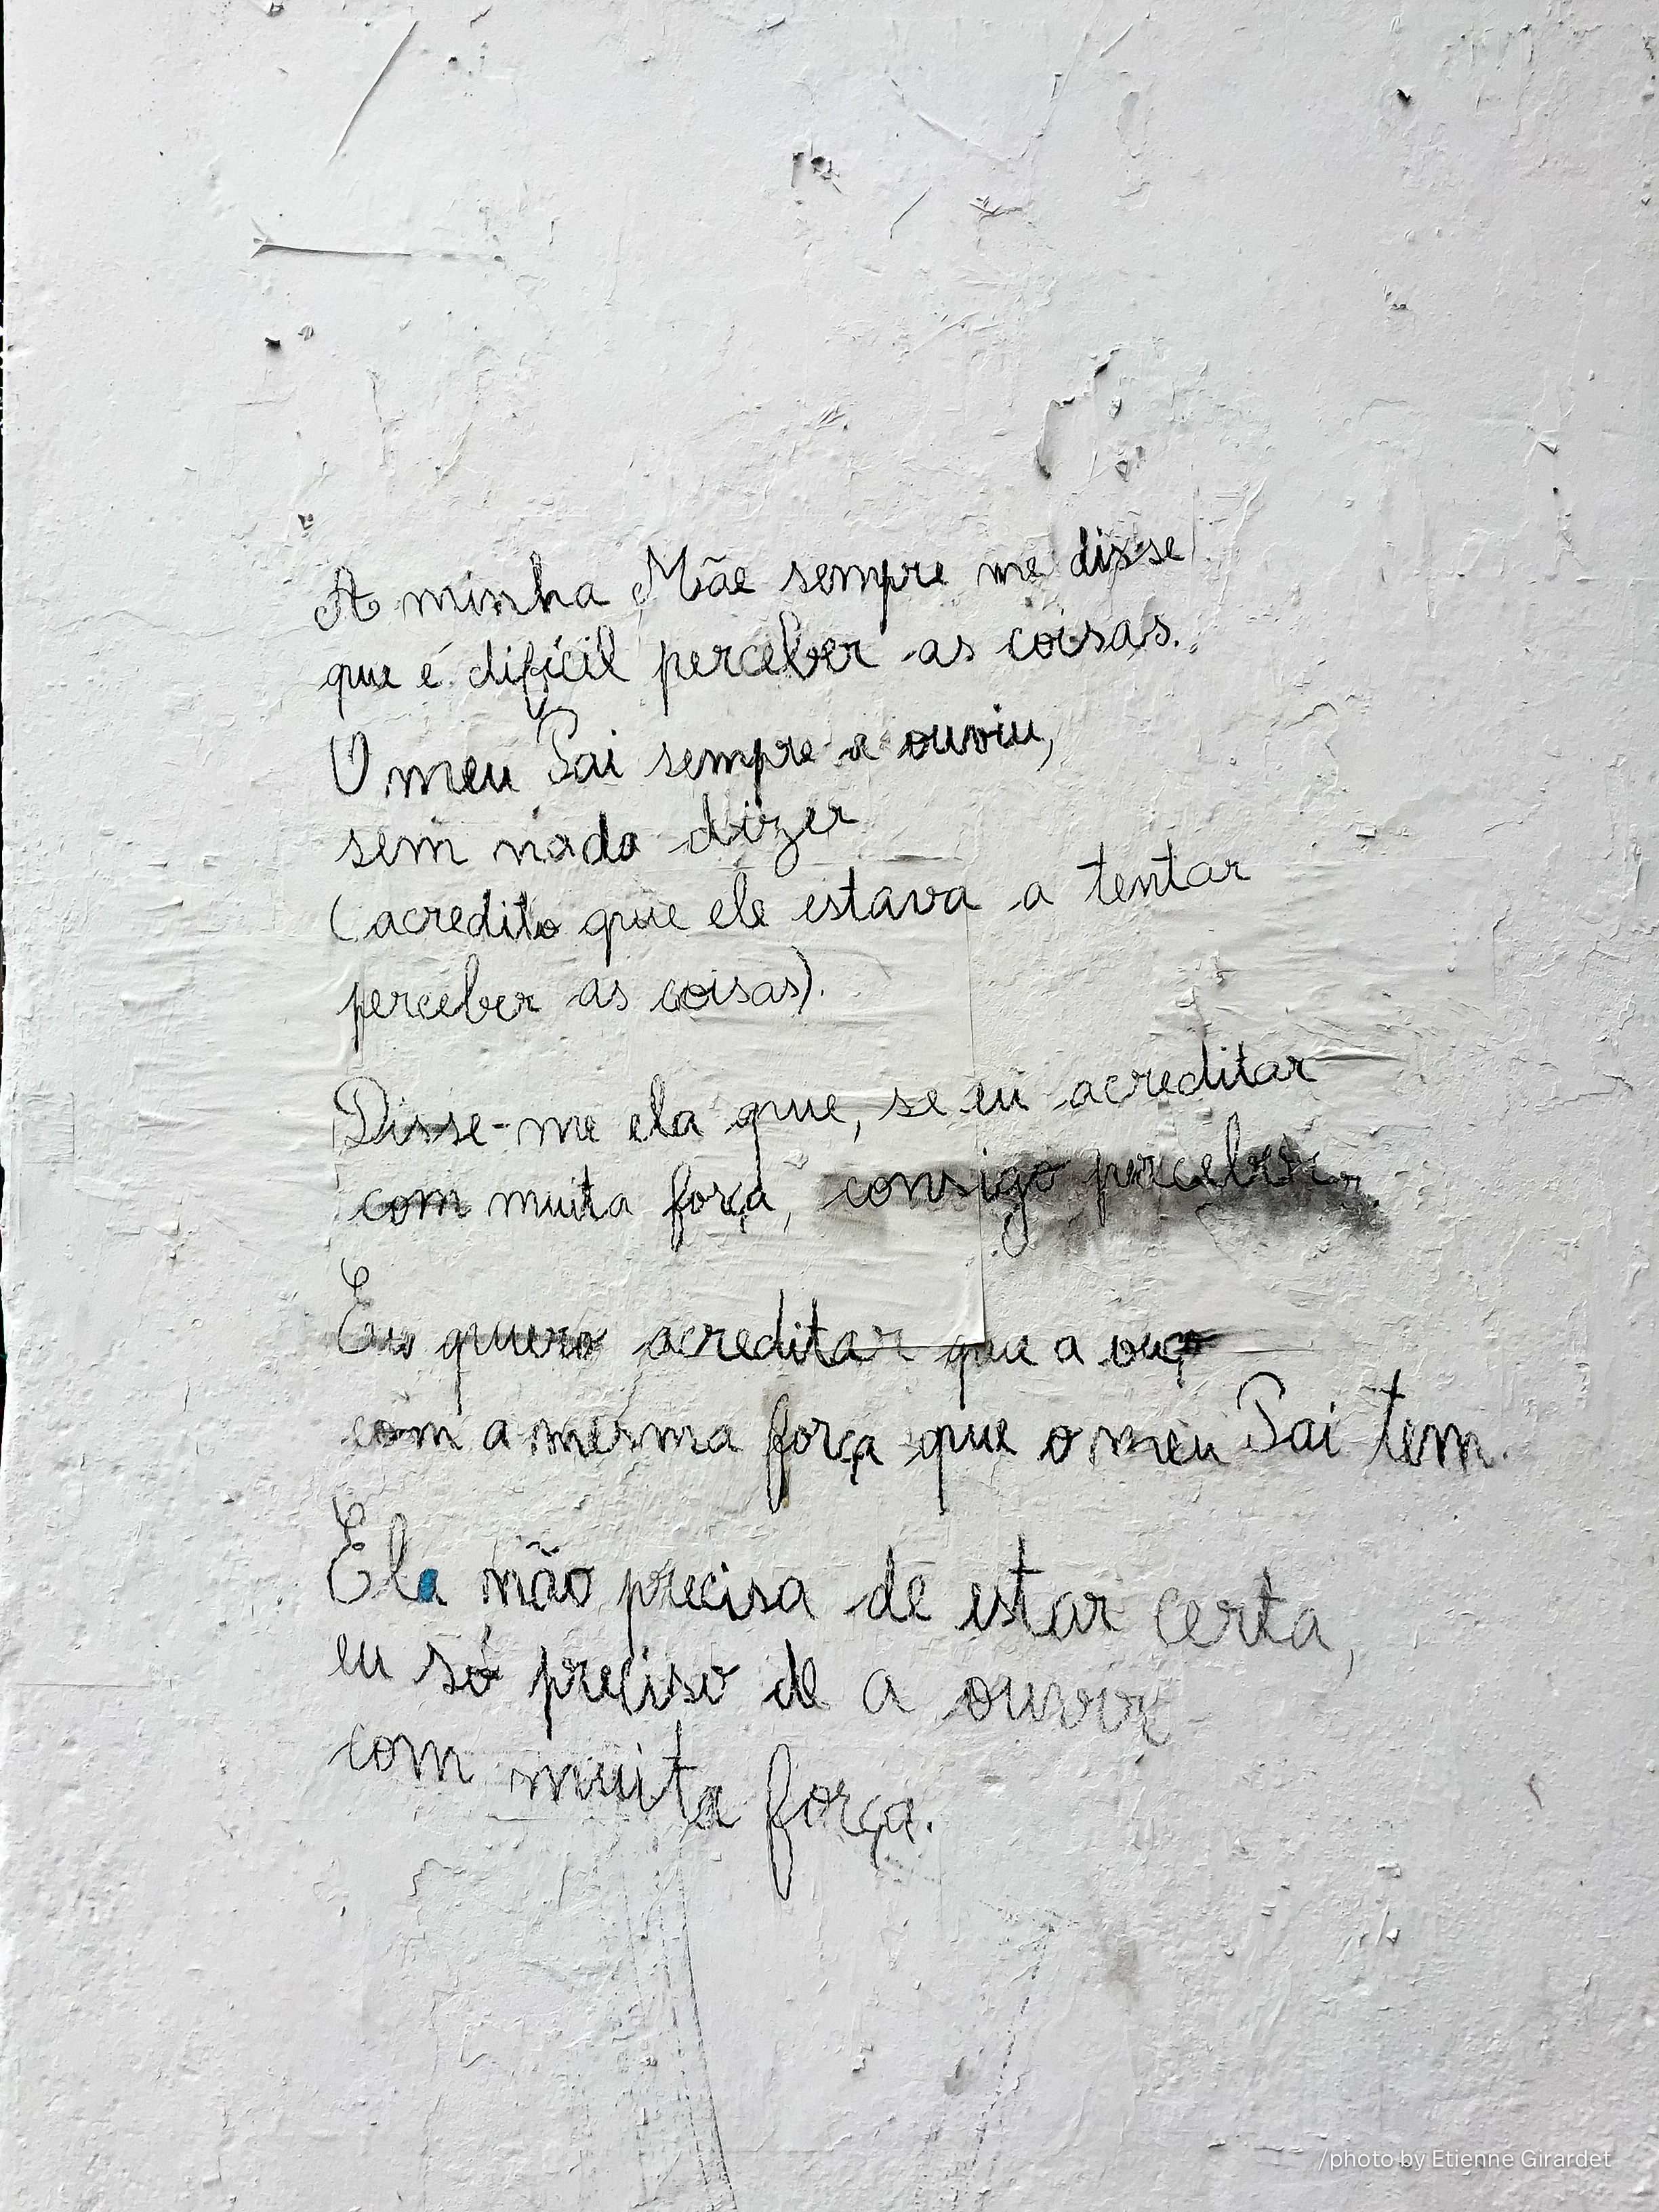 A minha Mãe sempre me disse
que é difícil perceber as coisas.
O meu Pai sempre a ouviu,
sem nada dizer
(acredito que ele estava a tentar
perceber as coisas).
Disse-me ela que, se eu acreditar
com muita força, consigo perceber.
Eu quero acreditar que a ouço
com a mesma força que o meu Pai tem.
Ela não precisa de estar certa,
eu só preciso de a ouvir
com muita força.
/photo by Etienne Girardet